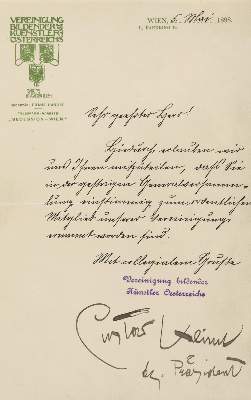 VEREINIGUNG
BILDENDER
KUENSTLER
ÖSTERREICHS
WIEN, 5. Mai 1898.
TELEGRAMM-ADRESSE
„SECESSION-WIEN“
Sehr geehrter Herr!
Hiedurch erlauben wir
uns Ihnen mitzuteilen, daß Sie
in der gestrigen Generalversamm-
lung einstimmig zum ordentlichen
Mitglied unserer Vereinigung
ernannt worden sind.
Mit collegialem Gruße
Vereinigung bildender
Künstler Oesterreichs
Gustav Klimt
Präsident